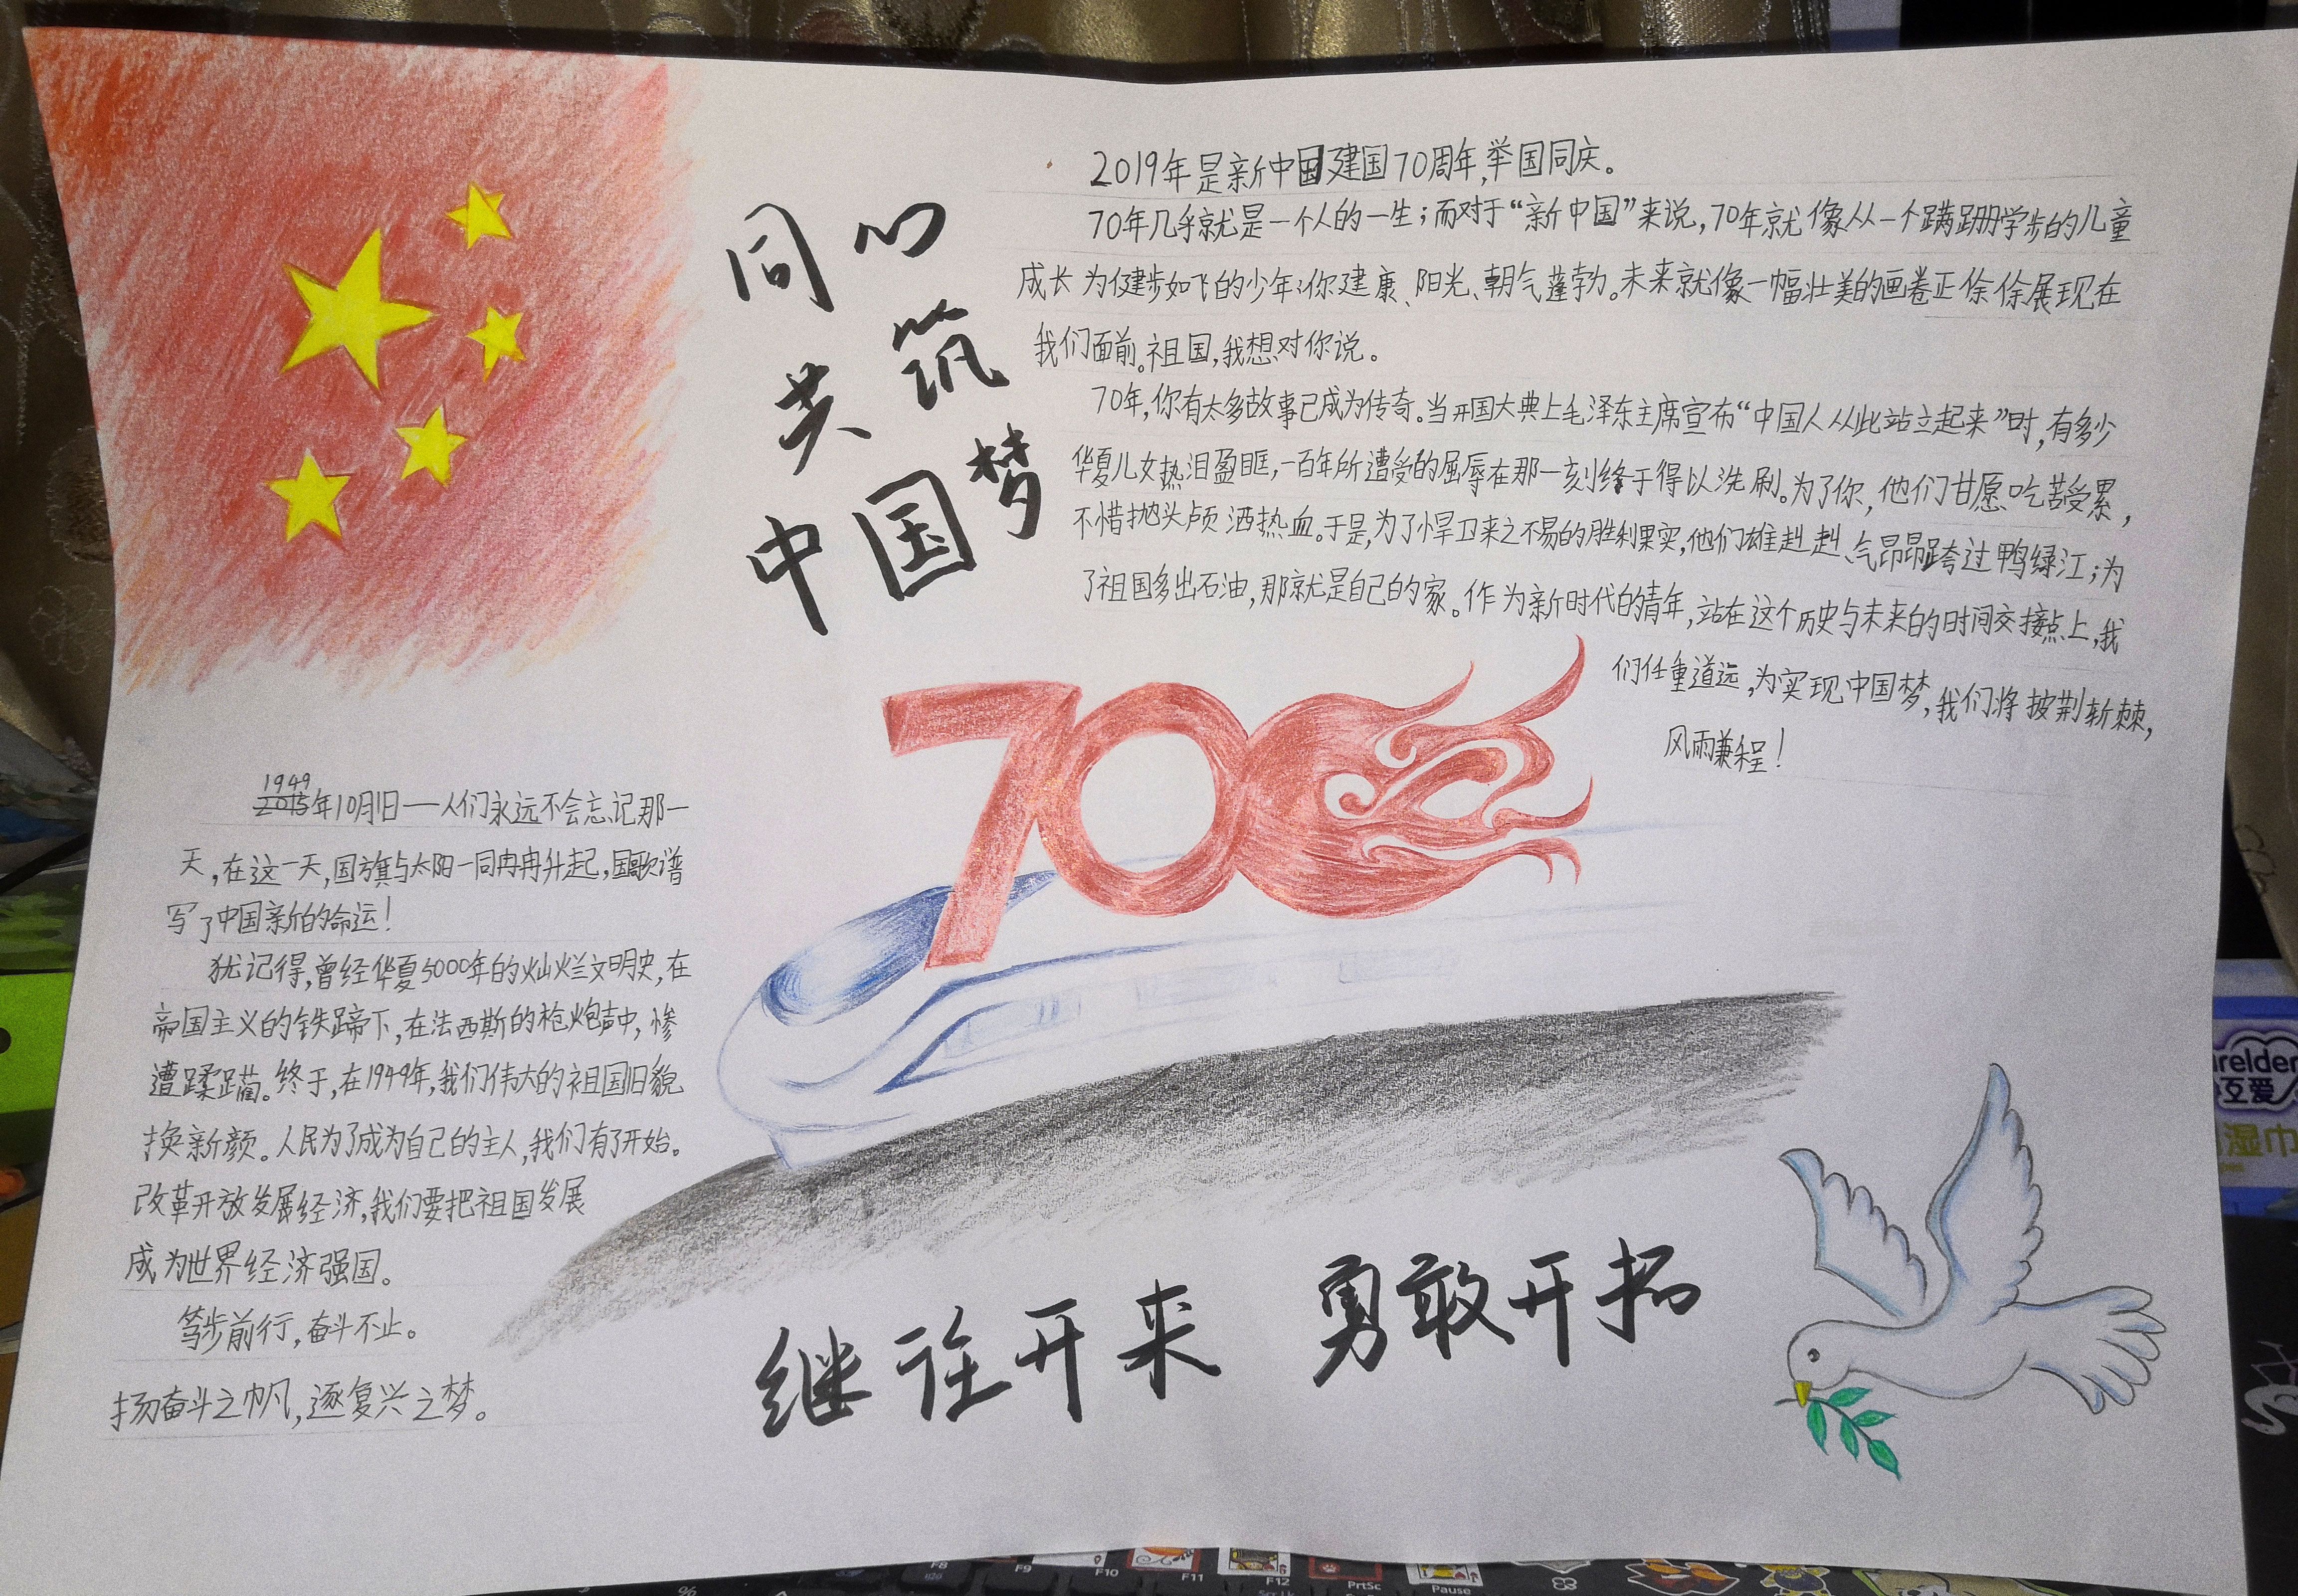 同心
共筑
中国梦
2019年是新中国建国70周年,举国同庆。
70年几乎就是一个人的一生;而对于“新中国”来说,70年就像从一个蹒跚学步的儿童
成长为健步如飞的少年:你健康、阳光、朝气蓬勃。未来就像一幅壮美的画卷正徐徐展现在
我们面前。祖国,我想对你说。
70年,你有太多故事已成为传奇。当开国大典上毛泽东主席宣布“中国人从此站立起来”时,有多少
华夏儿女热泪盈眶,一百年所遭受的屈辱在那一刻终于得以洗刷。为了你,他们甘愿吃苦受累,
不惜抛头颅洒热血。于是,为了悍卫来之不易的胜利果实,他们雄赳赳、气昂昂跨过鸭绿江;为
了祖国多出石油,那就是自己的家。作为新时代的青年,站在这个历史与未来的时间交接点上,我
们任重道远,为实现中国梦,我们将披荆斩棘,
风雨兼程!
70
1949
2015年10月1日——人们永远不会忘记那一
天,在这一天,国旗与太阳一同冉冉升起,国歌谱
写了中国新的命运!
犹记得,曾经华夏5000年的灿烂文明史,在
帝国主义的铁蹄下,在法西斯的枪炮声中,惨
遭蹂躏。终于,在1949年,我们伟大的祖国旧貌
换新颜。人民为了成为自己的主人,我们有了开始。
改革开放发展经济,我们要把祖国发展
成为世界经济强国。
笃步前行,奋斗不止。
扬奋斗之帆,逐复兴之梦。
继往开来 勇敢开拓
relder
互爱
湿巾
F8
F9
F10
F11
F12
PrtSc
Pause